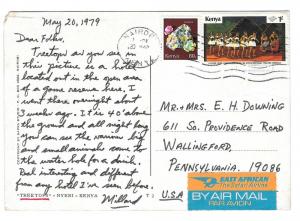 May 20, 1979
Dear Folks,
Treetop as you see in
this picture is a hotel
located out in the open area
of a game reserve here. I
went there overnight about
3 weeks ago. It is 40' above
the ground and all night long
you can see the various big
and small animals come to
the water hole for a drink.
Real interesting and different
from any hotel I've ever seen
before.
Millard
TREETOPS - NYERI - KENYA
NAIROBI
KENYA
Kenya
Kenya
Mr. & Mrs. E. H. Downing
611 So. Providence Road
Wallingford,
Pennsylvania 19086
U.S.A
EAST AFRICAN
The Safari Airline
BY AIR MAIL
PAR AVION